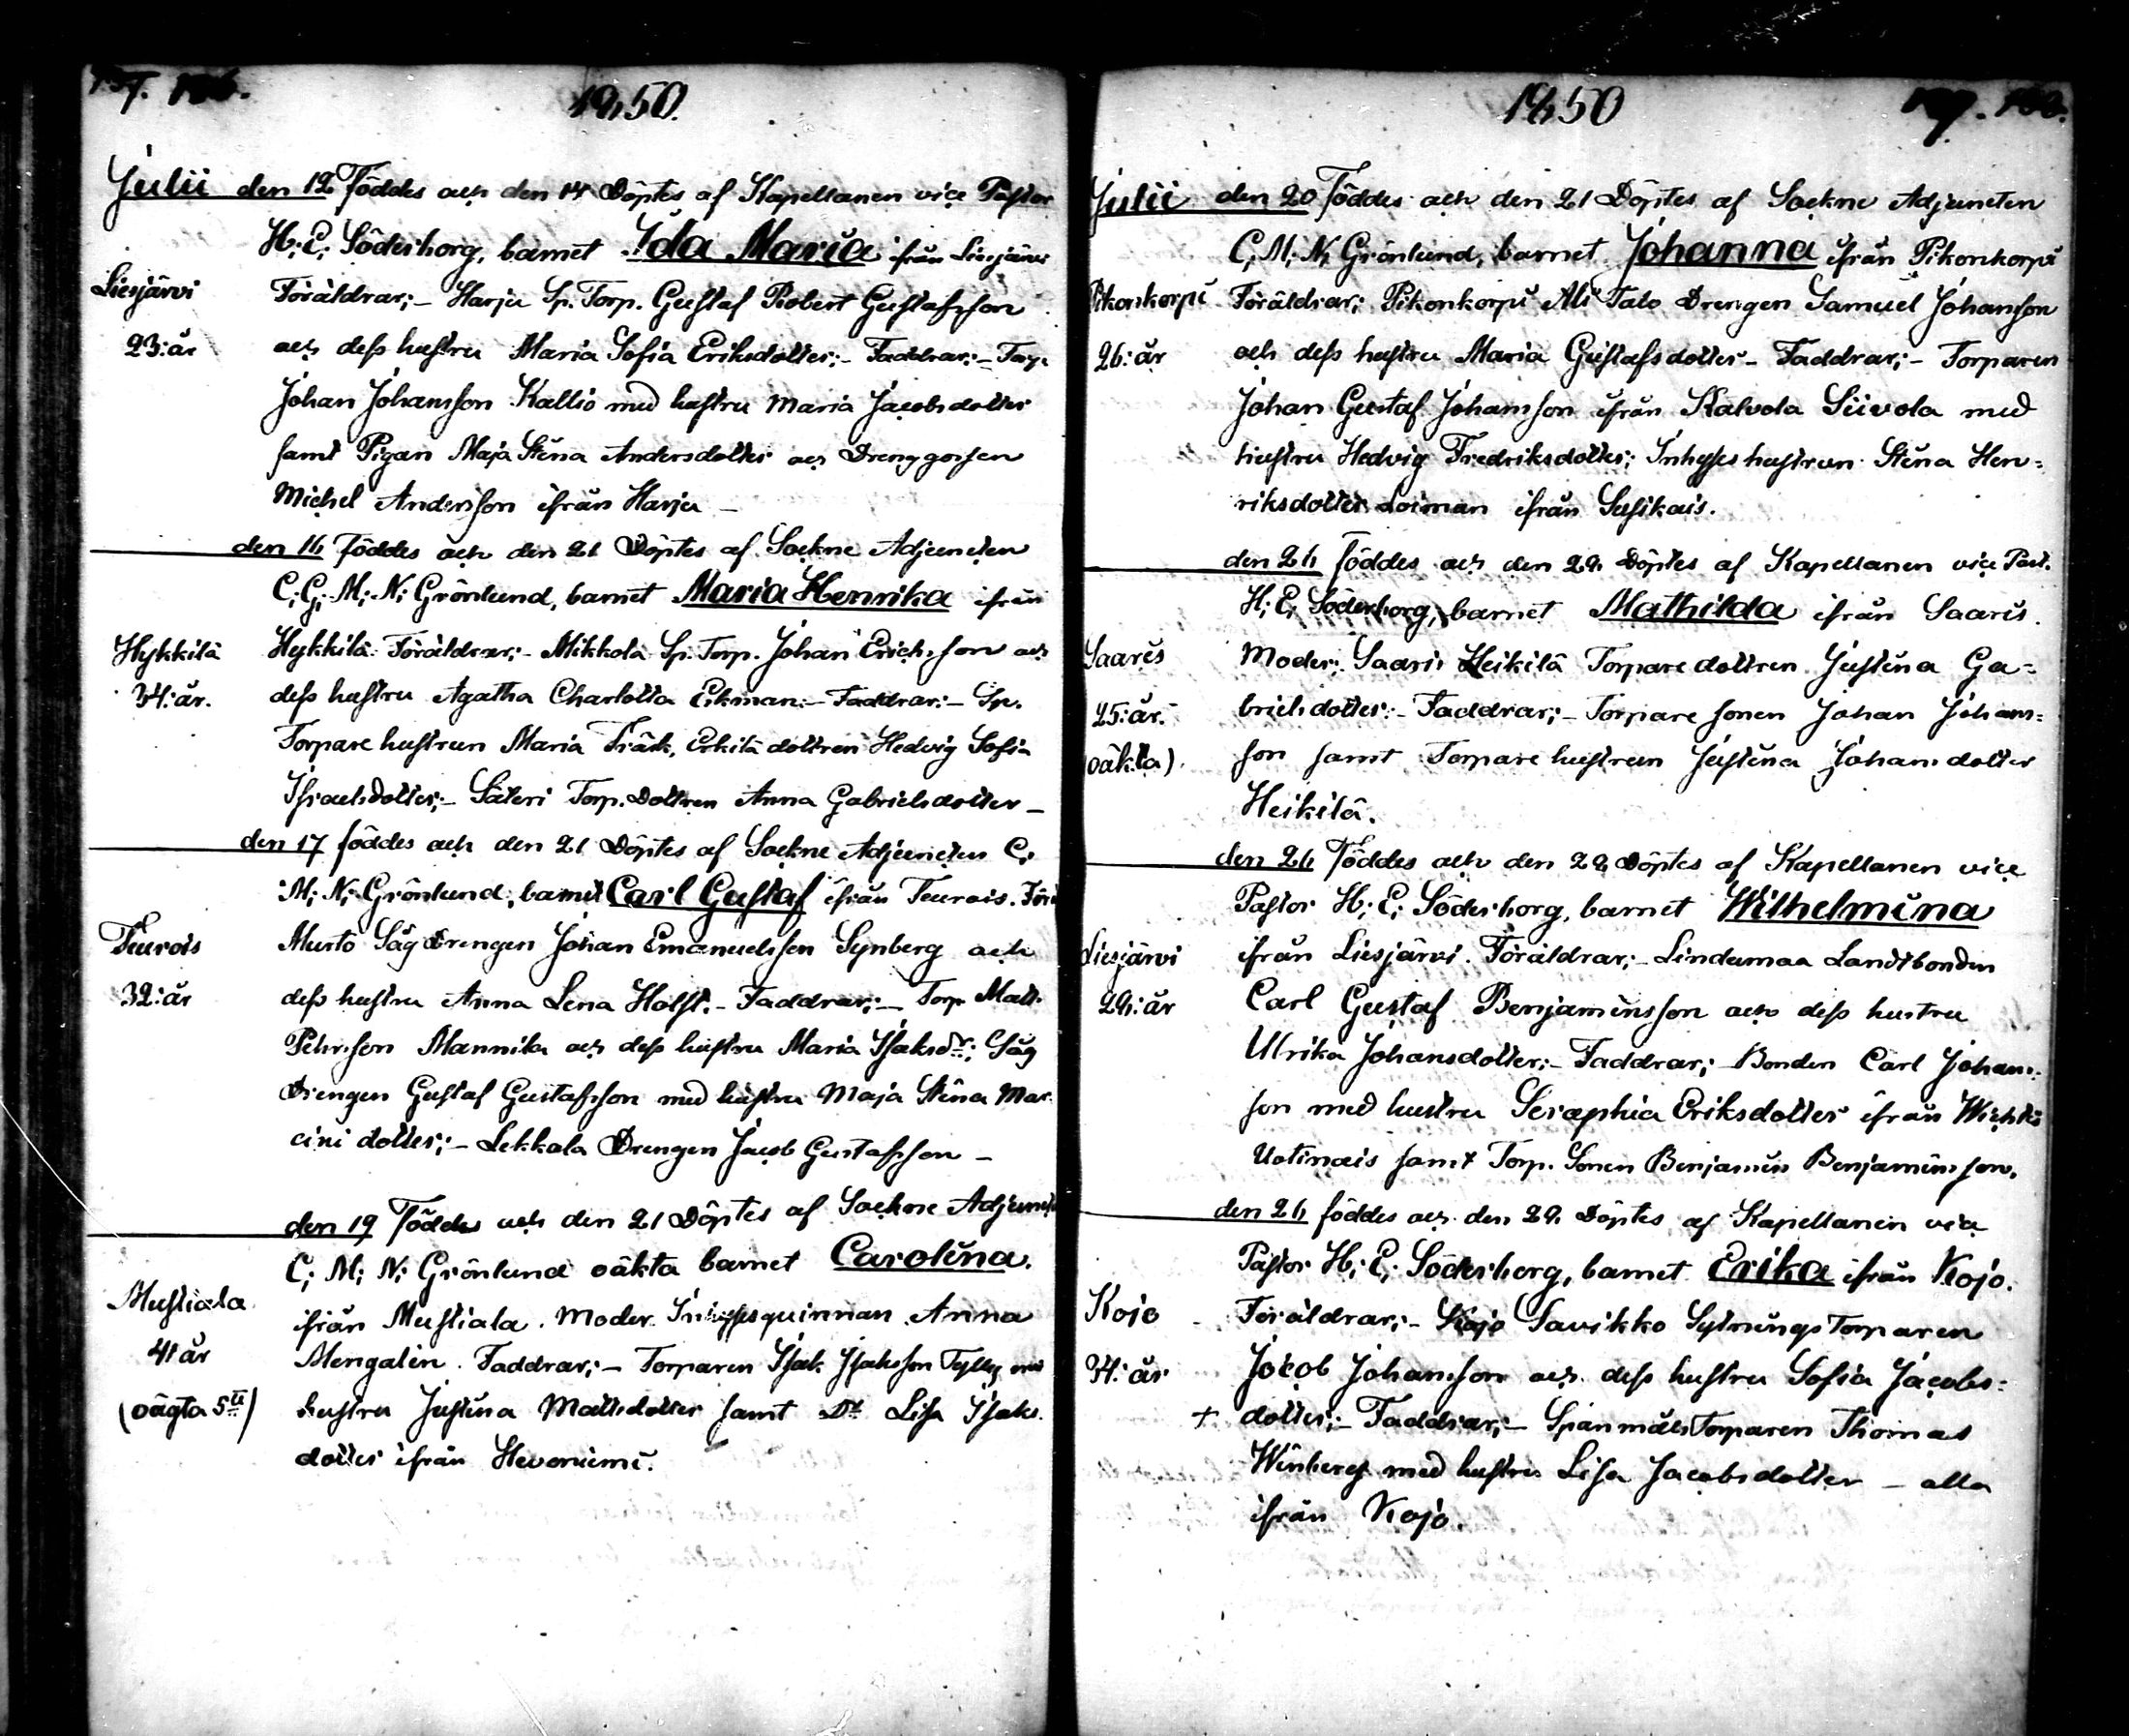 1850.
Julii den 12 Föddes och den 14 Döptes af Kapellanen vice Pastor
H: E: Söderborg, barnet Ida Maria ifrån Liesjärvi
Liesjärvi Föräldrar;- Harju Sp. Torp. Gustaf Robert Gustafsson
23: år och dess hustru Maria Sofia Eriksdotter;- Faddrar:- Torp.
Johan Johansson Kallio med hustru Maria Jacobsdotter
samt Pigan Maja Stina Andersdotter och Drenggossen
Michel Andersson ifrån Harju -
den 16 föddes och den 21 Döptes af Sockne Adjuncten
C; G; M; N; Grönlund, barnet Maria Henrika ifrån
Hykkilä Hykkilä Föräldrar:- Mikkola Sp. Torp. Johan Erichsson och
34: år. dess hustru Agatha Charlotta Ekman:- Faddrar:- Sp.
Torpare hustrun Maria Träsk, Erkilä dottren Hedvig Sofia
Israelsdotter;- Säteri Torp. Dottren Anna Gabrielsdotter -
den 17 föddes och den 21 Döptes af Sockne Adjuncten C;
M; N; Grönlund; barnet Carl Gustaf ifrån Teurois. För:
Teurois Musto Såg drengen Johan Emanuelsson Synberg och
32: år dess hustru Anna Lena Holst.- Faddrar;- Torp. Matt.
Pehrsson Mannika och dess hustru Maria Isaksdr; Såg
Drengen Gustaf Gustafsson med hustru Maja Stina Mar
cini dotter;- Lekkala Drengen Jacob Gustafsson -
den 19 Föddes och den 21 Döptes af Sockne Adjunct
C; M; N; Grönlund oäkta barnet Carolina.
Mustiala ifrån Mustiala. Moder Inhysesquinnan Anna
41 år Mengalin. Faddrar;- Torparen Isak Isaksson med
(oägta 5te) hustru Justina Mattsdotter samt Dr Lisa Isaks
dotter ifrån Hevoniemi.
1850
Julii den 20 Föddes och den 21 Döptes af Sockne Adjuncten
C; M; N; Grönlund, barnet Johanna ifrån Pikonkorpi
Pikonkorpi Föräldrar; Pikonkorpi Ali Talo Drengen Samuel Johansson
26: år och dess hustru Maria Gustafsdotter - Faddrar;- Torparen
Johan Gustaf Johansson ifrån Kalvola Siivola med
hustru Hedvig Fredriksdotter; Inhyses hustrun Stina Hen=
riksdotter Loiman ifrån Susikais.
den 26 föddes och den 28 Döptes af Kapellanen vice Past.
H; E; Söderborg, barnet Mathilda ifrån Saaris.
Saaris Moder: Saaris Heikilä Torpare dottren Justina Ga=
25: år. brielsdotter:- Faddrar;- Torpare sonen Johan Johans=
(oäkta) son samt Torpare hustrun Justina Johansdotter
Heikilä.
den 26 Föddes och den 28 Döptes af Kapellanen vice
Pastor H; E; Söderborg, barnet Wilhelmina
Liesjärvi ifrån Liesjärvi. Föräldrar;- Lindumaa Landtbonden
28: år Carl Gustaf Benjaminsson och dess hustru
Ulrika Johansdotter;- Faddrar; Bonden Carl Johans=
son med hustru Seraphia Eriksdotter ifrån Wichtis
Uotinais samt Torp. Sonen Benjamin Benjaminsson.
den 26 föddes och den 28 Döptes af Kapellanen vice
Pastor H; E; Söderborg, barnet Erika ifrån Kojo.
Kojo Föräldrar;- Kojo Savikko Sytnings Torparen
34: år Jacob Johansson och dess hustru Sofia Jacobs=
+ dotter;- Faddrar;- Spanmåls Torparen Thomas
Winberg med hustru Lisa Jacobsdotter - alla
ifrån Kojo.